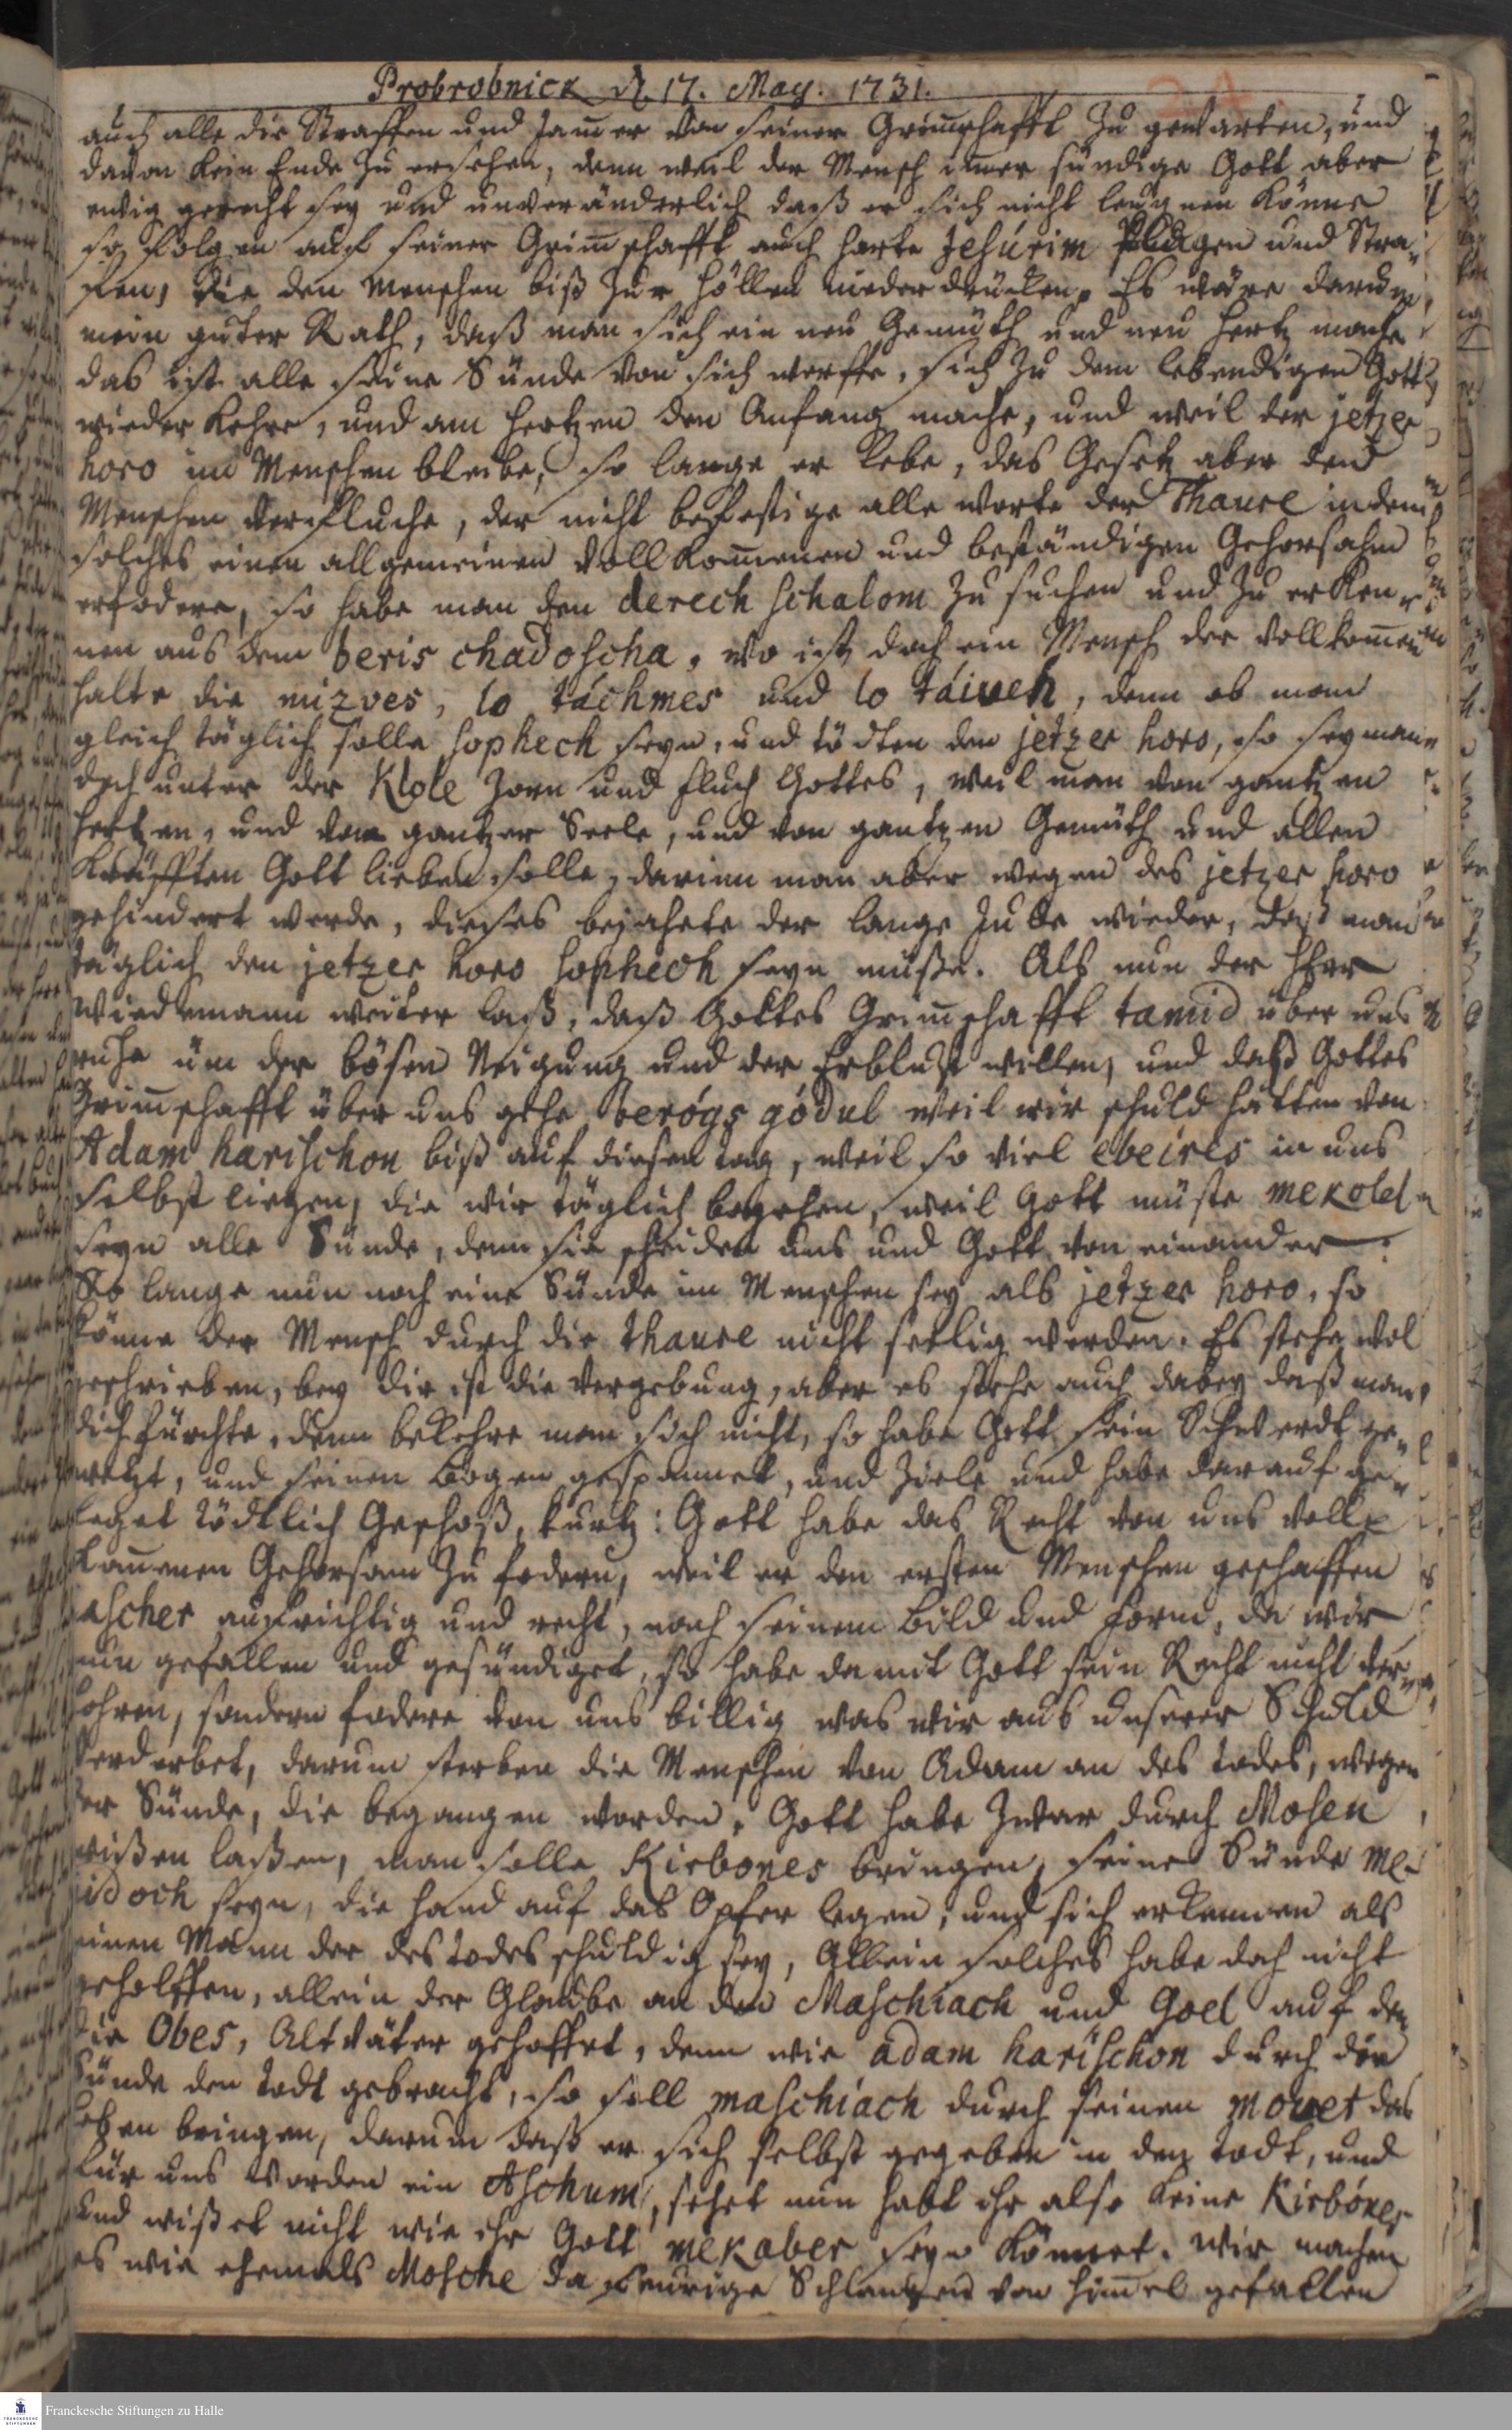 Probrobnick d. 17. May. 1731.
24.
auch alle die Straffen und Jam̄er von seiner Grim̄schafft zu gewarten, und
davon kein Ende zu ersehen, denn weil der Mensch im̄er sündige Gott aber
ewig gerecht sey und unveränderlich daß er sich nicht leugnen könne
so folgen auf seiner Grim̄schafft auch harte Jesúrim Plagen und Stra-
fen, die den Menschen biß zur Höllen niederdrücken. Es wäre darum
mein guter Rath, daß man sich ein neu Gemüth und neu Hertz mache
das ist alle seine Sünde von sich werffe, sich zu dem lebendigen Gott
wieder kehre, und am Hertzen den Anfang mache, und weil der jetzer
horo im Menschen bleibe, so lange er lebe, das Gesetz aber den
Menschen verfluche, der nicht befestige alle Worte der Thaure indem
solches einen allgemeinen vollkom̄enen und beständigen Gehorsahm
erfodere, so habe man den derech schalom zu suchen und zu erken-
nen aus dem beris chadoscha, wo ist doch ein Mensch der vollkom̄en
halte die mizves, lo táchmes und lo táiveh, denn ob man
gleich täglich solle sophech seyn, und tödten den jetzer horo, so sey man
doch unter der Klole Zorn und Fluch Gottes, weil man von gantzen
Hertzen, und von gantzer Seele, und von gantzen Gemüth und allen
Kräfften Gott lieben solle, darinn man aber wegen des jetzer horo
gehindert werde, dieses bejahete der lange Jude wieder, daß man
täglich den jetzer horo sophech seyn müße. Als nun der Herr
Wiedemann weiter laß, daß Gottes Grim̄schafft tamid über uns
ruhe üm der bösen Neigung und der Erblust willen, und daß Gottes
Grim̄schafft über uns gehe berógs gódul weil wir schuld hätten von
Adam harischon biß auf diesen tag, weil so viel ebeires in uns
selbst liegen, die wir täglich begehen, weil Gott müste mekolel
seyn alle Sünde, denn sie scheiden uns und Gott von einander.
So lange nun noch eine Sünde im Menschen sey als jetzer horo, so
könne der Mensch durch die thaure nicht seelig werden. Es stehe wol
geschrieben, bey dir ist die Vergebung, aber es stehe auch dabey daß man
dich fürchte, denn bekehre man sich nicht, so habe Gott sein Schwerdt ge-
wetzt, und seinen Bogen gespannet, und ziele und habe darauf ge-
leget tödtlich Geschoß, kurtz: Gott habe das Recht von uns voll-
kom̄enen Gehorsam zu fodern, weil er den ersten Menschen geschaffen
jascher aufrichtig und recht, nach seinem Bild und Form, da wir
nun gefallen und gesündiget, so habe damit Gott sein Recht nicht ver-
lohren, sondern fodere von uns billig was wir aus unserer Schuld
verderbet, darum sterben die Menschen von Adam an des todes, wegen
der Sünde, die begangen worden. Gott habe zwar durch Mosen
wißen laßen, man solle Kirbones bringen, seine Sünde me-
jidoch seyn, die Hand auf das Opfer legen, und sich erkennen als
einen Mann der des todes schuldig sey, Allein solches habe doch nicht
geholffen, allein der Glaube an den Maschiach und Goel auf den
die Obes, Altväter gehoffet, denn wie adam harischon durch die
Sünde den todt gebracht, so soll maschiach durch seinen mouet das
Leben bringen, darum daß er sich selbst gegeben in den todt, und
für uns worden ein Aschum, sehet nun habt ihr also keine Kirbónes
und wißet nicht wie ihr Gott mekaber seyn könnet. Wir machen
es wie ehemals Mosche da feurige Schlangen von Him̄el gefallen
Franckesche Stiftungen zu Halle